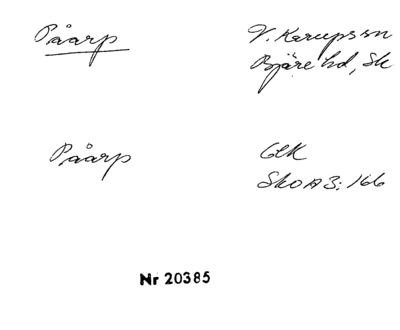 Påarp
V. Karups sn
Bjäre hd, Sk
Påarp
GEK
SkOA 3: 166
Nr 20385